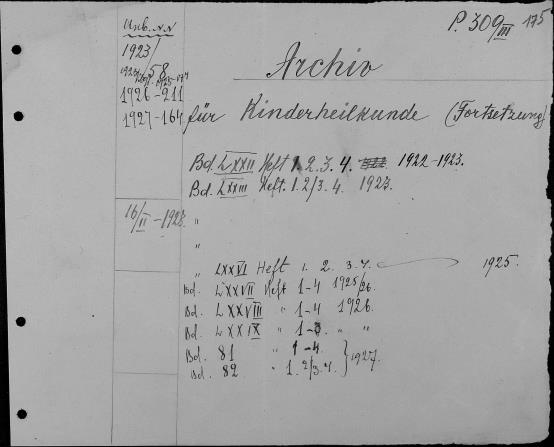 Инв. NN
P. 309/III 175
1923/58
1926-211
1927-164
Archiv
für Kinderheilkunde (Fortsetzung)
Bd. LXXII Heft 1. 2. 3. 4. 1922-1923.
Bd. LXXIII Heft. 1. 2/3. 4. 1923.
16/II-1923. "
"
" LXXVI Heft 1. 2. 3-4. 1925.
Bd. LXXVII Heft 1-4 1925/26.
Bd. LXXVIII " 1-4 1926.
Bd. LXXIX " " "
Bd. 81 " 1-4
Bd. 82 " 1. 2/3. 4. } 1927.